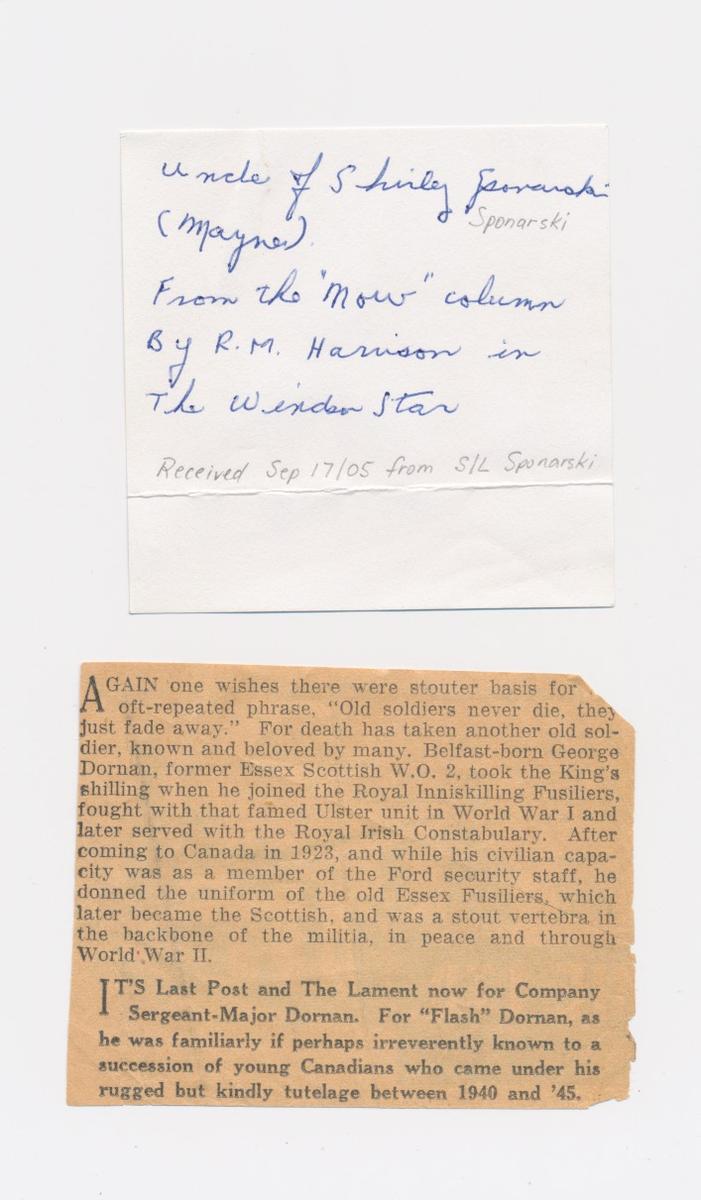 Uncle of Shirley Sponarski
Sponarski
(Mayne).
From the "Now" column
By R.M. Harrison in
The Windsor Star
Received Sep 17/05 from S/L Sponarski
AGAIN one wishes there were stouter basis for
oft-repeated phrase, "Old soldiers never die, they
just fade away." For death has taken another old sol-
dier, known and beloved by many. Belfast-born George
Dornan, former Essex Scottish W.O. 2, took the King's
shilling when he joined the Royal Inniskilling Fusiliers,
fought with that famed Ulster unit in World War I and
later served with the Royal Irish Constabulary. After
coming to Canada in 1923, and while his civilian capa-
city was as a member of the Ford security staff, he
donned the uniform of the old Essex Fusiliers, which
later became the Scottish, and was a stout vertebra in
the backbone of the militia, in peace and through
World War II.
IT'S Last Post and The Lament now for Company
Sergeant-Major Dornan. For "Flash" Dornan, as
he was familiarly if perhaps irreverently known to a
succession of young Canadians who came under his
rugged but kindly tutelage between 1940 and '45.